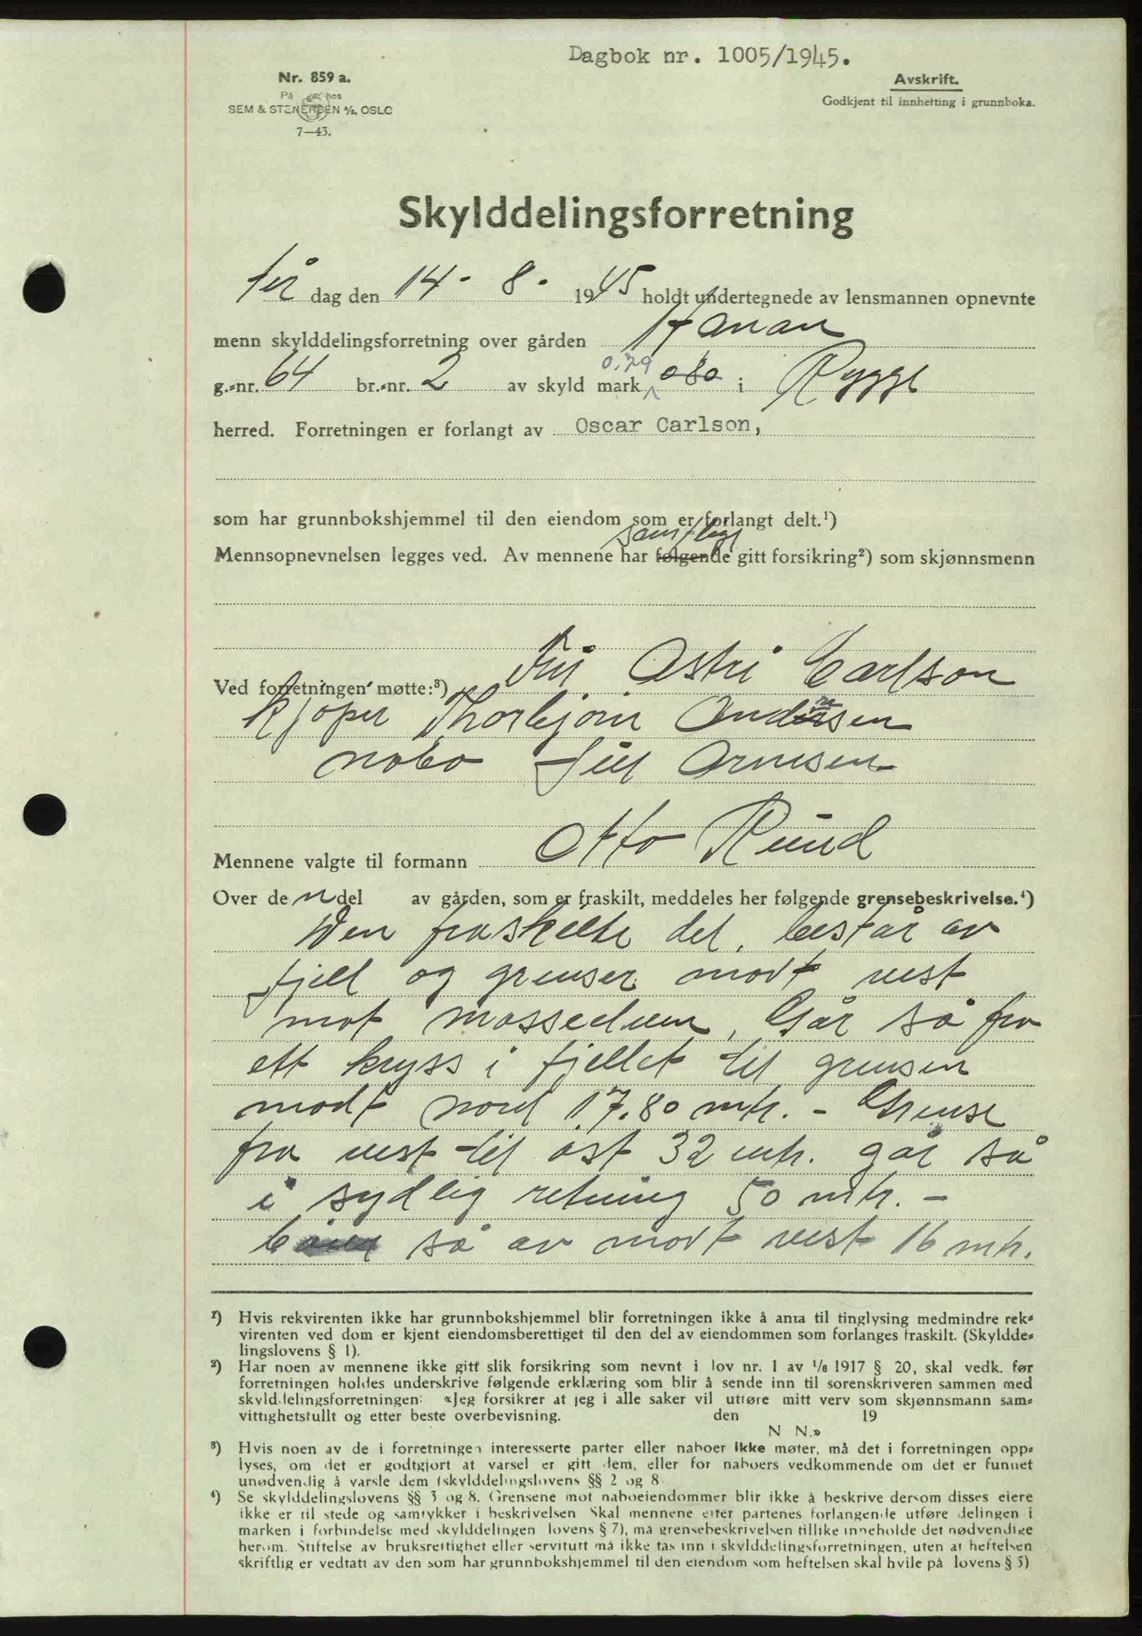 Dagbok nr. 1005/1945.
Nr. 859 a.
På lager hos
SEM & STENERSEN A/S, OSLO
7—43.
Avskrift.
Godkjent til innhefting i grunnboka.
Skylddelingsforretning
tirsdag den 14 - 8 - 1945 holdt undertegnede av lensmannen opnevnte
menn skylddelingsforretning over gården Hanan
g.-nr. 64 br.-nr. 2 av skyld mark 0.79 0.80 i Rygge
herred. Forretningen er forlangt av Oscar Carlson,
som har grunnbokshjemmel til den eiendom som er forlangt delt.¹)
samtlige
Mennsopnevnelsen legges ved. Av mennene har følgende gitt forsikring²) som skjønnsmenn
Ved forretningen møtte:³) Fru Astri Carlson
kjøper Thorbjørn Andersen
nabo Arnesen
Mennene valgte til formann Otto Ruud
Over den del av gården, som er fraskilt, meddeles her følgende grensebeskrivelse.⁴)
Den fraskilte del, består av
fjell og grenser modt vest
mot mosseduen, Går så fra
ett kryss i fjellet til grensen
modt nord 17.80 mtr. - Grense
fra vest til øst 32 mtr. går så
i sydlig retning 50 mtr. -
så av modt vest 16 mtr.
¹) Hvis rekvirenten ikke har grunnbokshjemmel blir forretningen ikke å anta til tinglysing medmindre rek-
virenten ved dom er kjent eiendomsberettiget til den del av eiendommen som forlanges fraskilt. (Skyldde-
lingslovens § 1).
²) Har noen av mennene ikke gitt slik forsikring som nevnt i lov nr. 1 av 1/6 1917 § 20, skal vedk. før
forretningen holdes underskrive følgende erklæring som blir å sende inn til sorenskriveren sammen med
skylddelingsforretningen: «Jeg forsikrer at jeg i alle saker vil utføre mitt verv som skjønnsmann sam-
vittighetsfullt og etter beste overbevisning. den 19
N N.»
³) Hvis noen av de i forretningen interesserte parter eller naboer ikke møter, må det i forretningen opp-
lyses, om det er godtgjort at varsel er gitt dem, eller for naboers vedkommende om det er funnet
unødvendig å varsle dem (skylddelingslovens §§ 2 og 8
⁴) Se skylddelingslovens §§ 3 og 8. Grensene mot naboeiendommer blir ikke å beskrive dersom disses eiere
ikke er til stede og samtykker i beskrivelsen Skal mennene etter partenes forlangende utføre delingen i
marken i forbindelse med skylddelingen lovens § 7), må grensebeskrivelsen tillike inneholde det nødvendige
herom. Stiftelse av bruksrettighet eller servitutt må ikke tas inn i skylddelingsforretningen, uten at heftelsen
skriftlig er vedtatt av den som har grunnbokshjemmel til den eiendom som heftelsen skal hvile på lovens § 5)